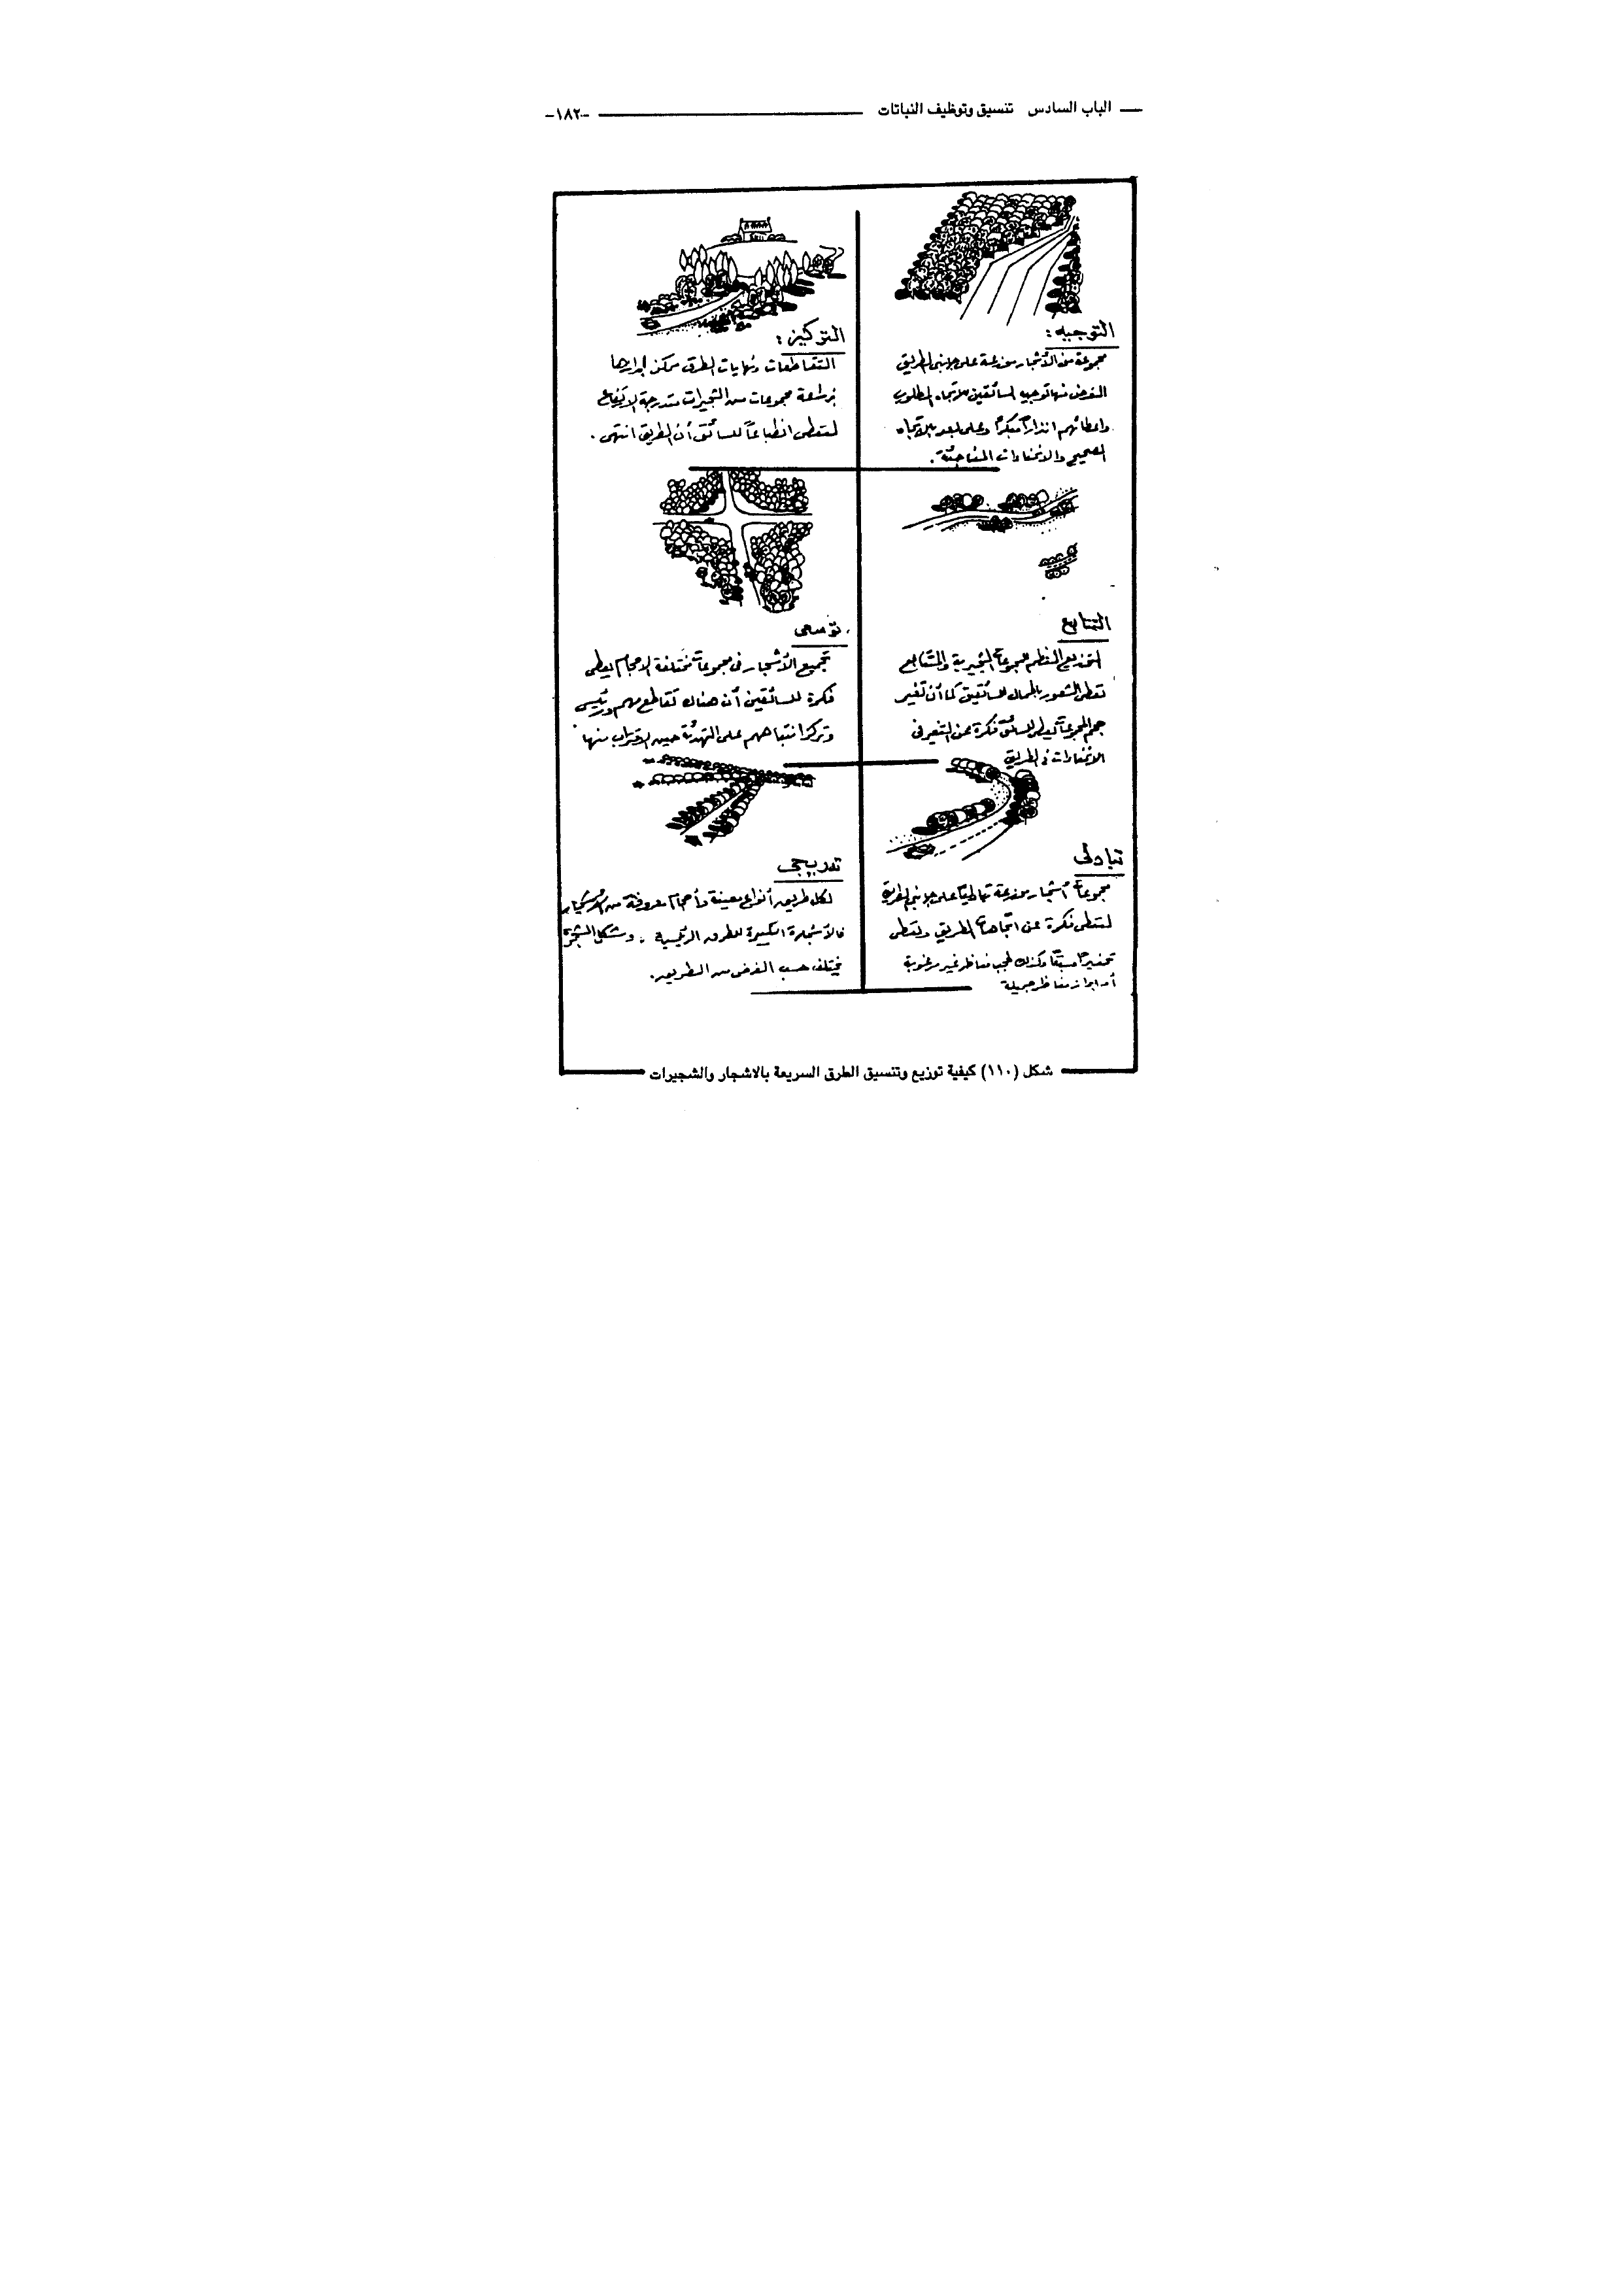 الباب السادس تنسيق وتوظيف النباتات
-١٨٢-
التوجيه :
مجموعة من الأشجار موزعة على جانبي الطريق
الغرض منها توجيه السائقين للاتجاه المطلوب
واعطائهم انذاراً مبكراً وعلى بعد بالاتجاه
الصحيح والانحناءات المفاجئة .
التركيز :
التقاطعات ونهايات الطرق يمكن ابرازها
بزراعة مجموعات من الشجيرات متدرجة الارتفاع
لتعطى انطباعاً للسائق أن الطريق انتهى .
التتابع
التوزيع المنظم للمجموعات الشجيرية والتتابع
تعطى الشعور بالجمال للسائقين كما أن تغير
حجم المجموعات يعطى للسائق فكرة عن التغير فى
الانحناءات فى الطريق
توسعى
تجميع الأشجار فى مجموعات مختلفة الاحجام يعطى
فكرة للسائقين أن هناك تقاطع مهم ورئيسى
وتركز انتباههم على التهدئة حين الاقتراب منها
تبادلى
مجموعات أشجار موزعة تبادلياً على جانبى الطريق
لتعطى فكرة عن اتجاهات الطريق وتعطى
تحذيراً مسبقاً وكذلك لحجب مناظر غير مرغوبة
أو ابراز مناظر جميلة
تدريجى
لكل طريق أنواع معينة وأحجام معروفة من الأشجار
فالأشجار الكبيرة للطرق الرئيسية . وشكل الشجرة
يختلف حسب الغرض من الطريق .
شكل (١١٠) كيفية توزيع وتنسيق الطرق السريعة بالاشجار والشجيرات